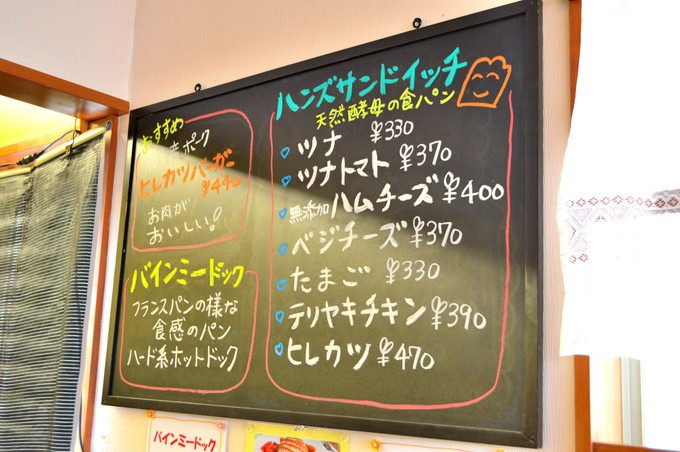 おすすめ
ポーク
ヒレカツバーガー
¥440
お肉が
おいしい!
バインミードック
フランスパンの様な
食感のパン
ハード系ホットドック
ハンズサンドイッチ
天然酵母の食パン
ツナ ¥330
ツナトマト ¥370
無添加ハムチーズ ¥400
ベジチーズ ¥370
たまご ¥330
テリヤキチキン ¥390
ヒレカツ ¥470
バインミードック